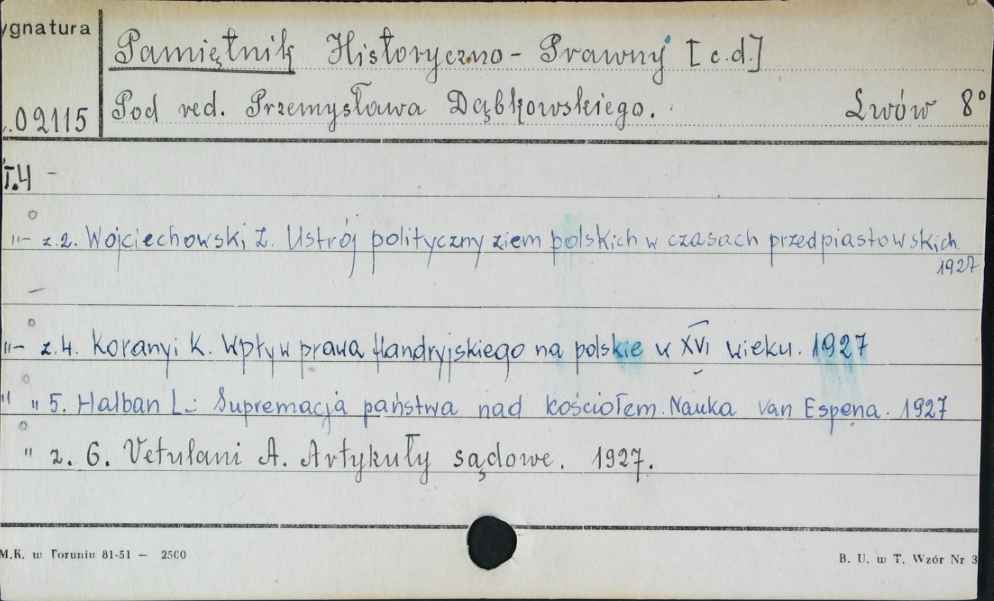 ygnatura
Pamiętnik Historyczno-Prawny [c.d.]
.02115 Pod red. Przemysława Dąbkowskiego. Lwów 8°
T.4 -
"- z.2. Wojciechowski Z. Ustrój polityczny ziem polskich w czasach przedpiastowskich
1927
"- z.4. Koranyi K. Wpływ prawa flandryjskiego na polskie w XVI wieku. 1927
" " 5. Halban L.: Supremacja państwa nad kościołem. Nauka van Espena. 1927
" z. 6. Vetulani A. Artykuły sądowe. 1927.
M.K. w Toruniu 81-51 — 2500 B. U. w T. Wzór Nr 3